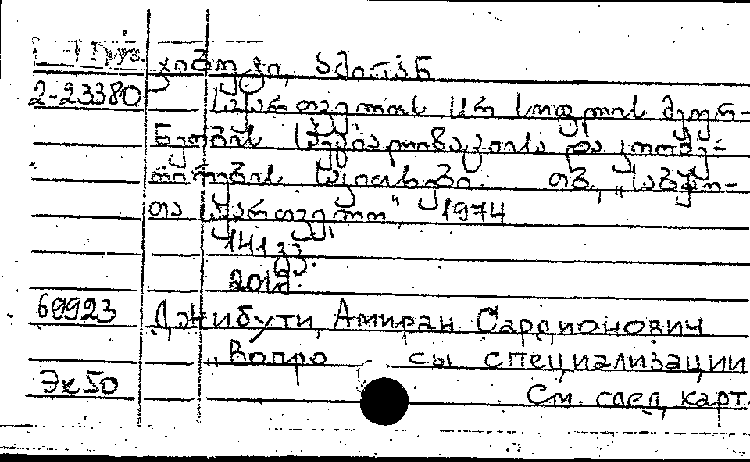 Груз.
ჯიბუტი, ამირან
2-23380 საქართველოს სსრ სოფლის მეურ-
ნეობის სპეციალიზაციისა და კოოპე-
რირების საკითხები. თბ., „საბჭო-
თა საქართველო", 1974
141 გვ.
20სმ.
69923 Джибути, Амиран Сардионович
„Вопро сы специализации
Эк50 См. след. карт.